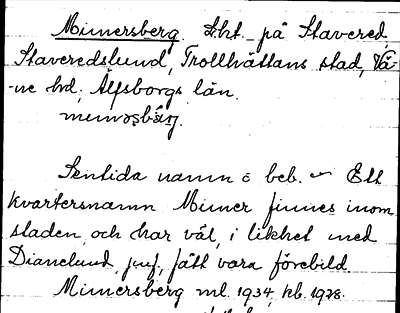 Mimersberg. Lht. på Stavered,
Staveredslund, Trollhättans stad, Vä-
-ne hd, Älfsborgs län.
Sentida namn å beb. – Ett
kvartersnamn Mimer finnes inom
staden, och har väl, i likhet med
Dianelund, jmf, fått vara förebild
Mimersberg ml. 1934, kb. 1928.